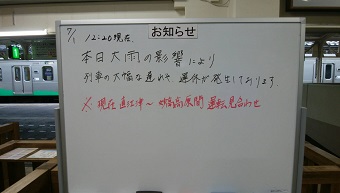 お知らせ
7/1 12:20現在.
本日大雨の影響により
列車の大幅な遅れや 運休が発生しております.
※ 現在 直江津〜妙高高原間 運転見合わせ